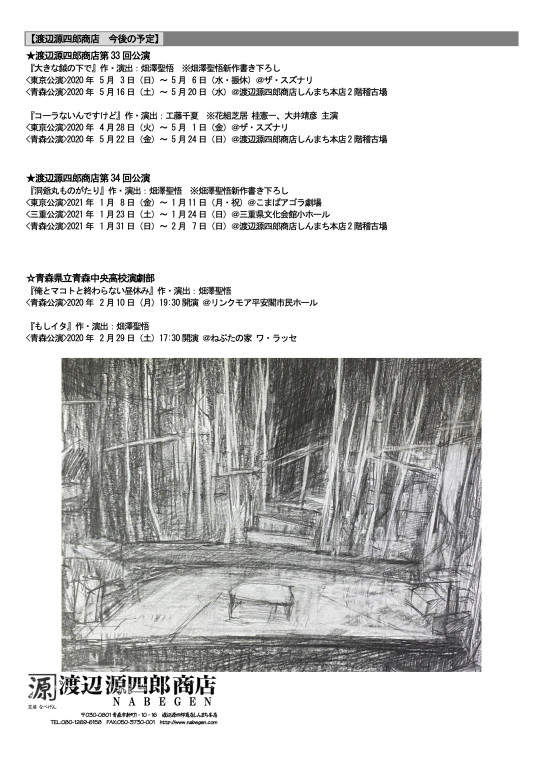 【渡辺源四郎商店　今後の予定】
★渡辺源四郎商店第33回公演
『大きな鉞の下で』作・演出：畑澤聖悟　※畑澤聖悟新作書き下ろし
<東京公演>2020年 5月 3日（日）～ 5月 6日（水・振休）＠ザ・スズナリ
<青森公演>2020年 5月16日（土）～ 5月20日（水）＠渡辺源四郎商店しんまち本店2階稽古場
『コーラないんですけど』作・演出：工藤千夏　※花組芝居 桂憲一、大井靖彦 主演
<東京公演>2020年 4月28日（火）～ 5月 1日（金）＠ザ・スズナリ
<青森公演>2020年 5月22日（金）～ 5月24日（日）＠渡辺源四郎商店しんまち本店2階稽古場
★渡辺源四郎商店第34回公演
『洞爺丸ものがたり』作・演出：畑澤聖悟　※畑澤聖悟新作書き下ろし
<東京公演>2021年 1月 8日（金）～ 1月11日（月・祝）＠こまばアゴラ劇場
<三重公演>2021年 1月23日（土）～ 1月24日（日）＠三重県文化会館小ホール
<青森公演>2021年 1月31日（日）～ 2月 7日（日）＠渡辺源四郎商店しんまち本店2階稽古場
☆青森県立青森中央高校演劇部
『俺とマコトと終わらない昼休み』作・演出：畑澤聖悟
<青森公演>2020年 2月10日（月）19:30開演 ＠リンクモア平安閣市民ホール
『もしイタ』作・演出：畑澤聖悟
<青森公演>2020年 2月29日（土）17:30開演 ＠ねぶたの家 ワ・ラッセ
源 渡辺源四郎商店
NABEGEN
〒030-0801 青森市新町1-10-16　渡辺源四郎商店しんまち本店
TEL:080-1269-6158　FAX:050-3730-001　http://www.nabegen.com